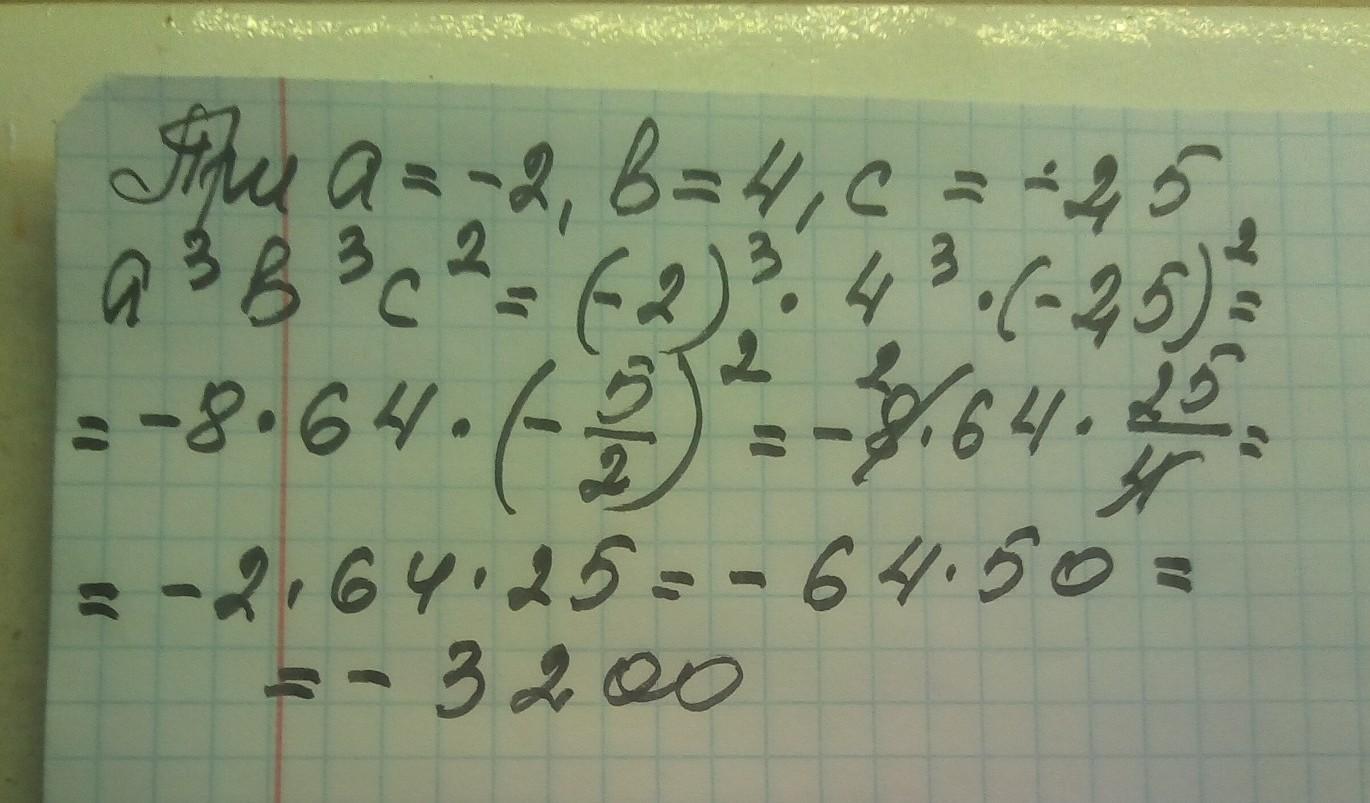 При a = -2, b = 4, c = -2,5
a³b³c² = (-2)³ · 4³ · (-2,5)² =
= -8 · 64 · (-5/2)² = -8² · 64 · 25/4 =
= -2 · 64 · 25 = -64 · 50 =
= -3200